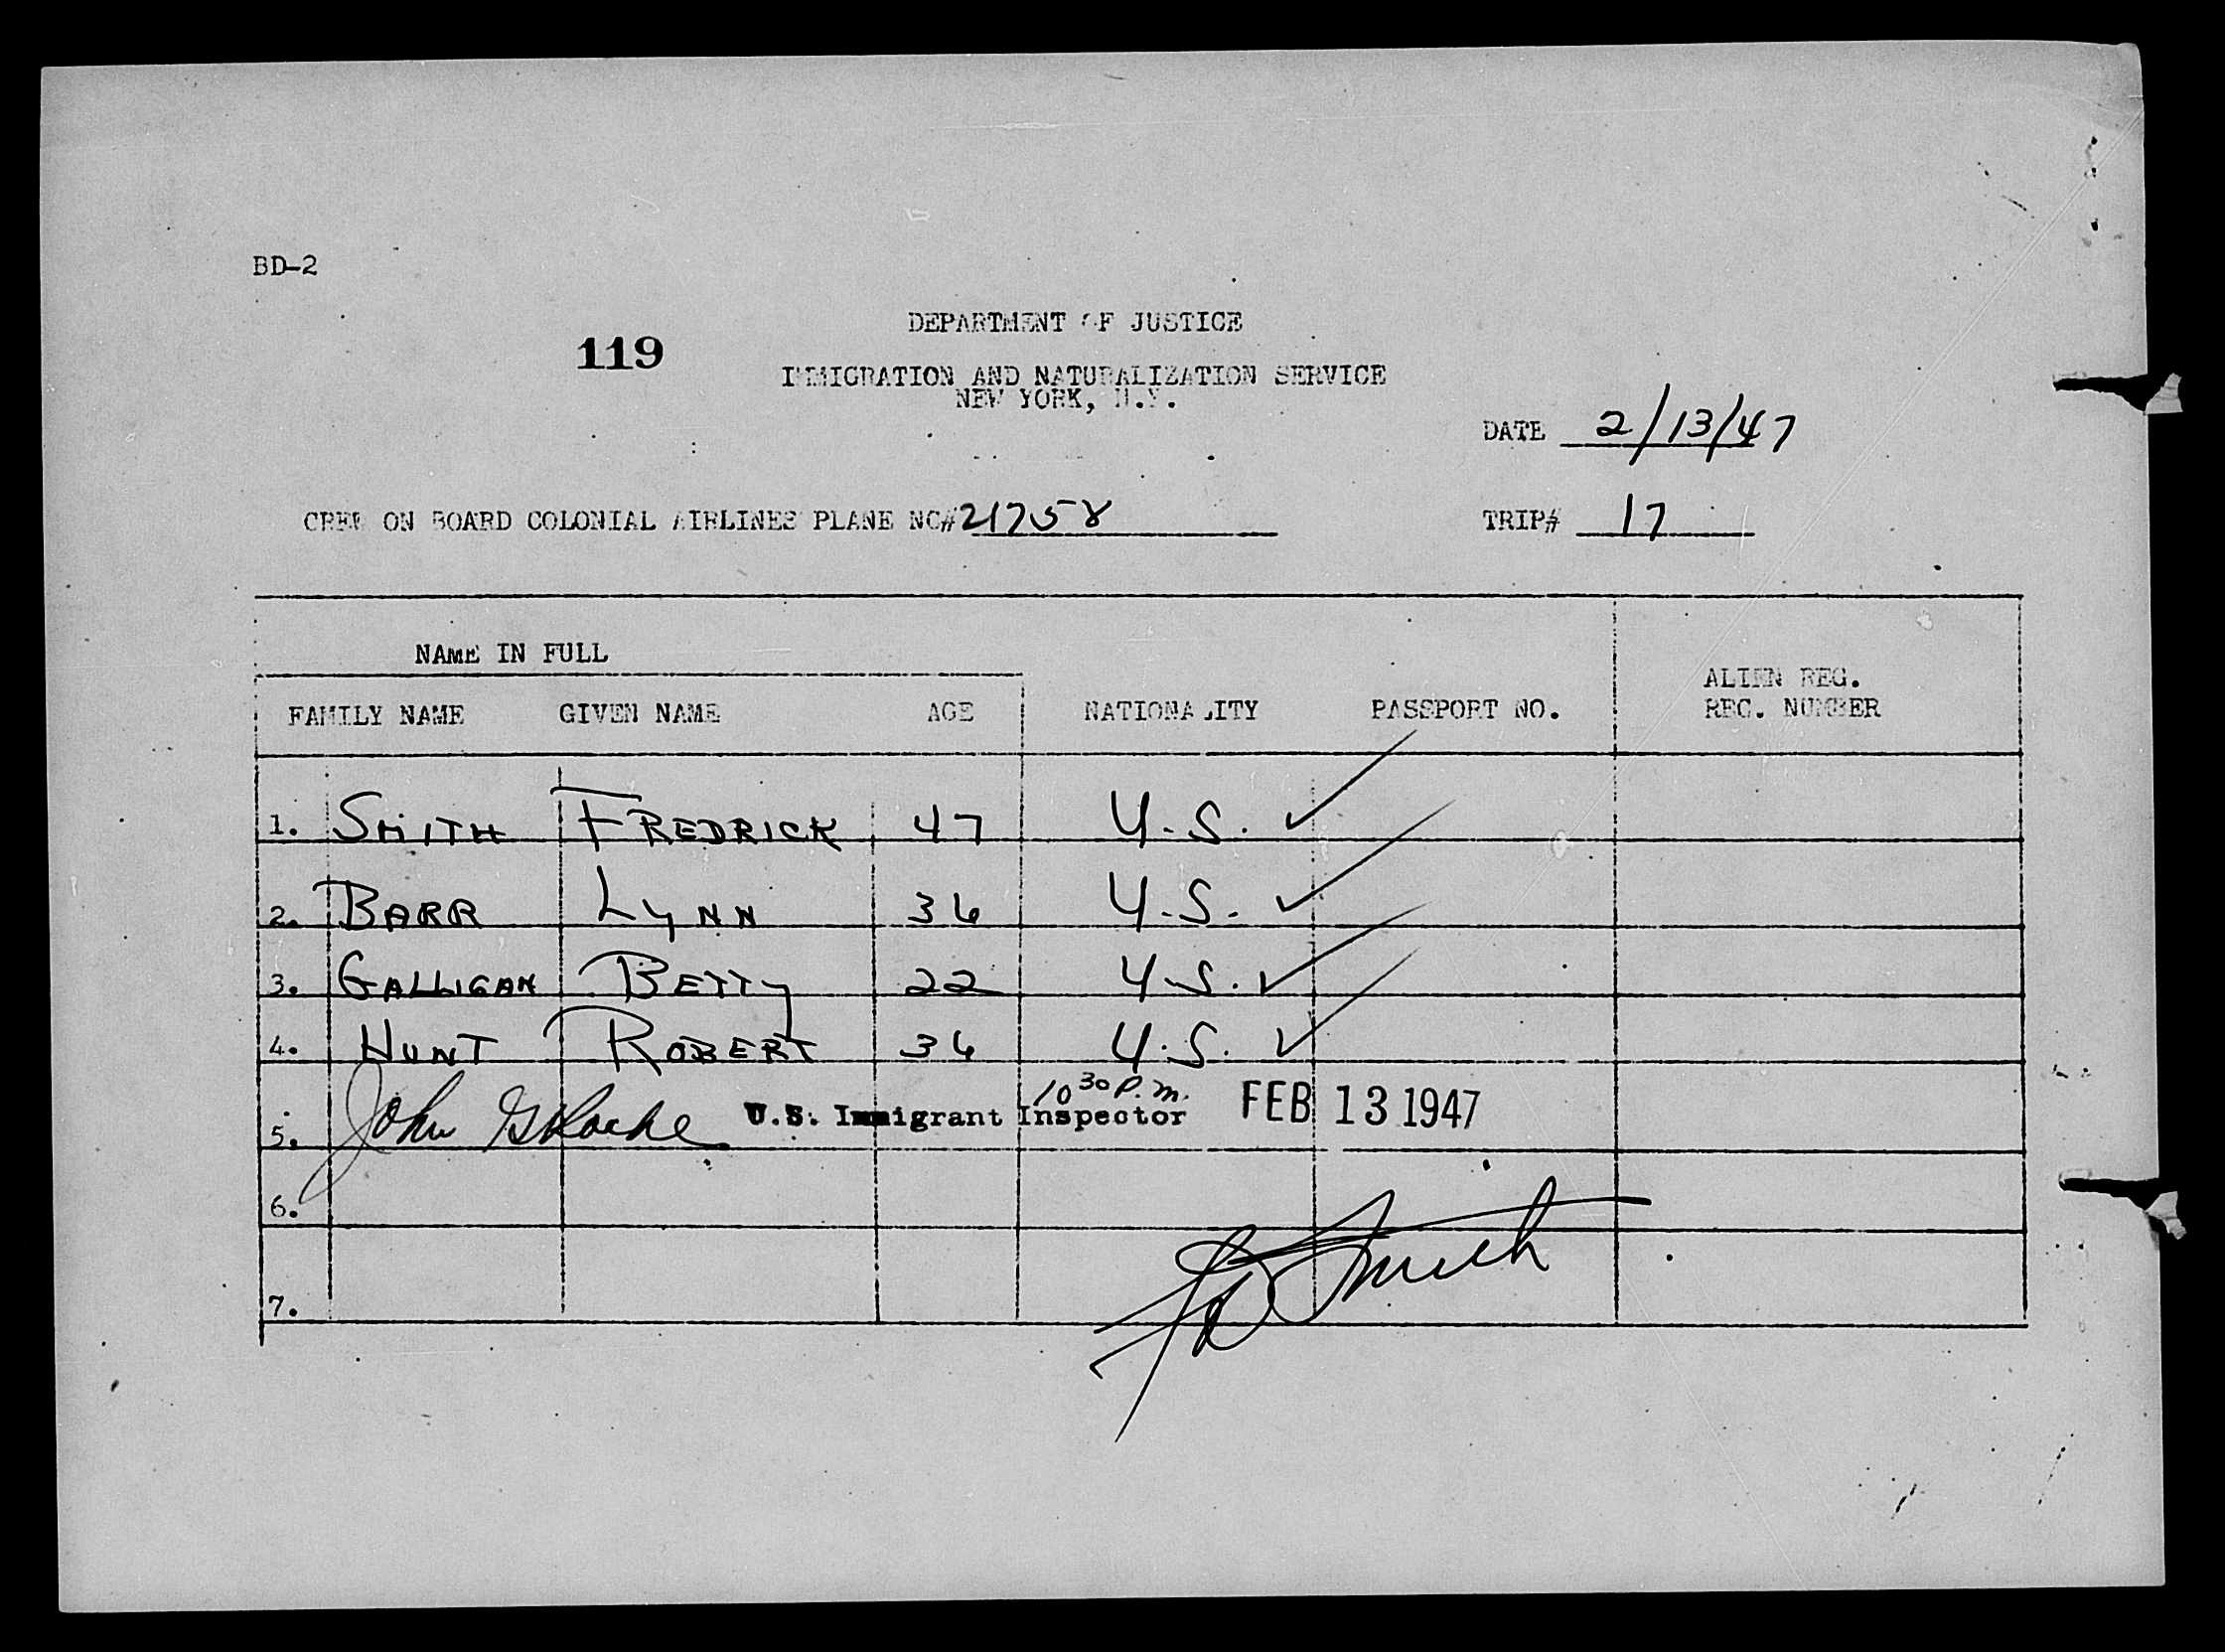 BD-2
DEPARTMENT OF JUSTICE
119
IMMIGRATION AND NATURALIZATION SERVICE
NEW YORK, N.Y.
DATE 2/13/47
CREW ON BOARD COLONIAL AIRLINES PLANE NC# 21758
TRIP# 17
NAME IN FULL
ALIEN REG.
FAMILY NAME GIVEN NAME AGE NATIONALITY PASSPORT NO. REC. NUMBER
1. SMITH FREDRICK 47 U.S. ✓
2. BARR LYNN 36 U.S. ✓
3. GALLIGAN BETTY 22 U.S. ✓
4. HUNT ROBERT 36 U.S. ✓
10 30 P.M.
5. John U.S. Immigrant Inspector FEB 13 1947
6.
Smith
7.